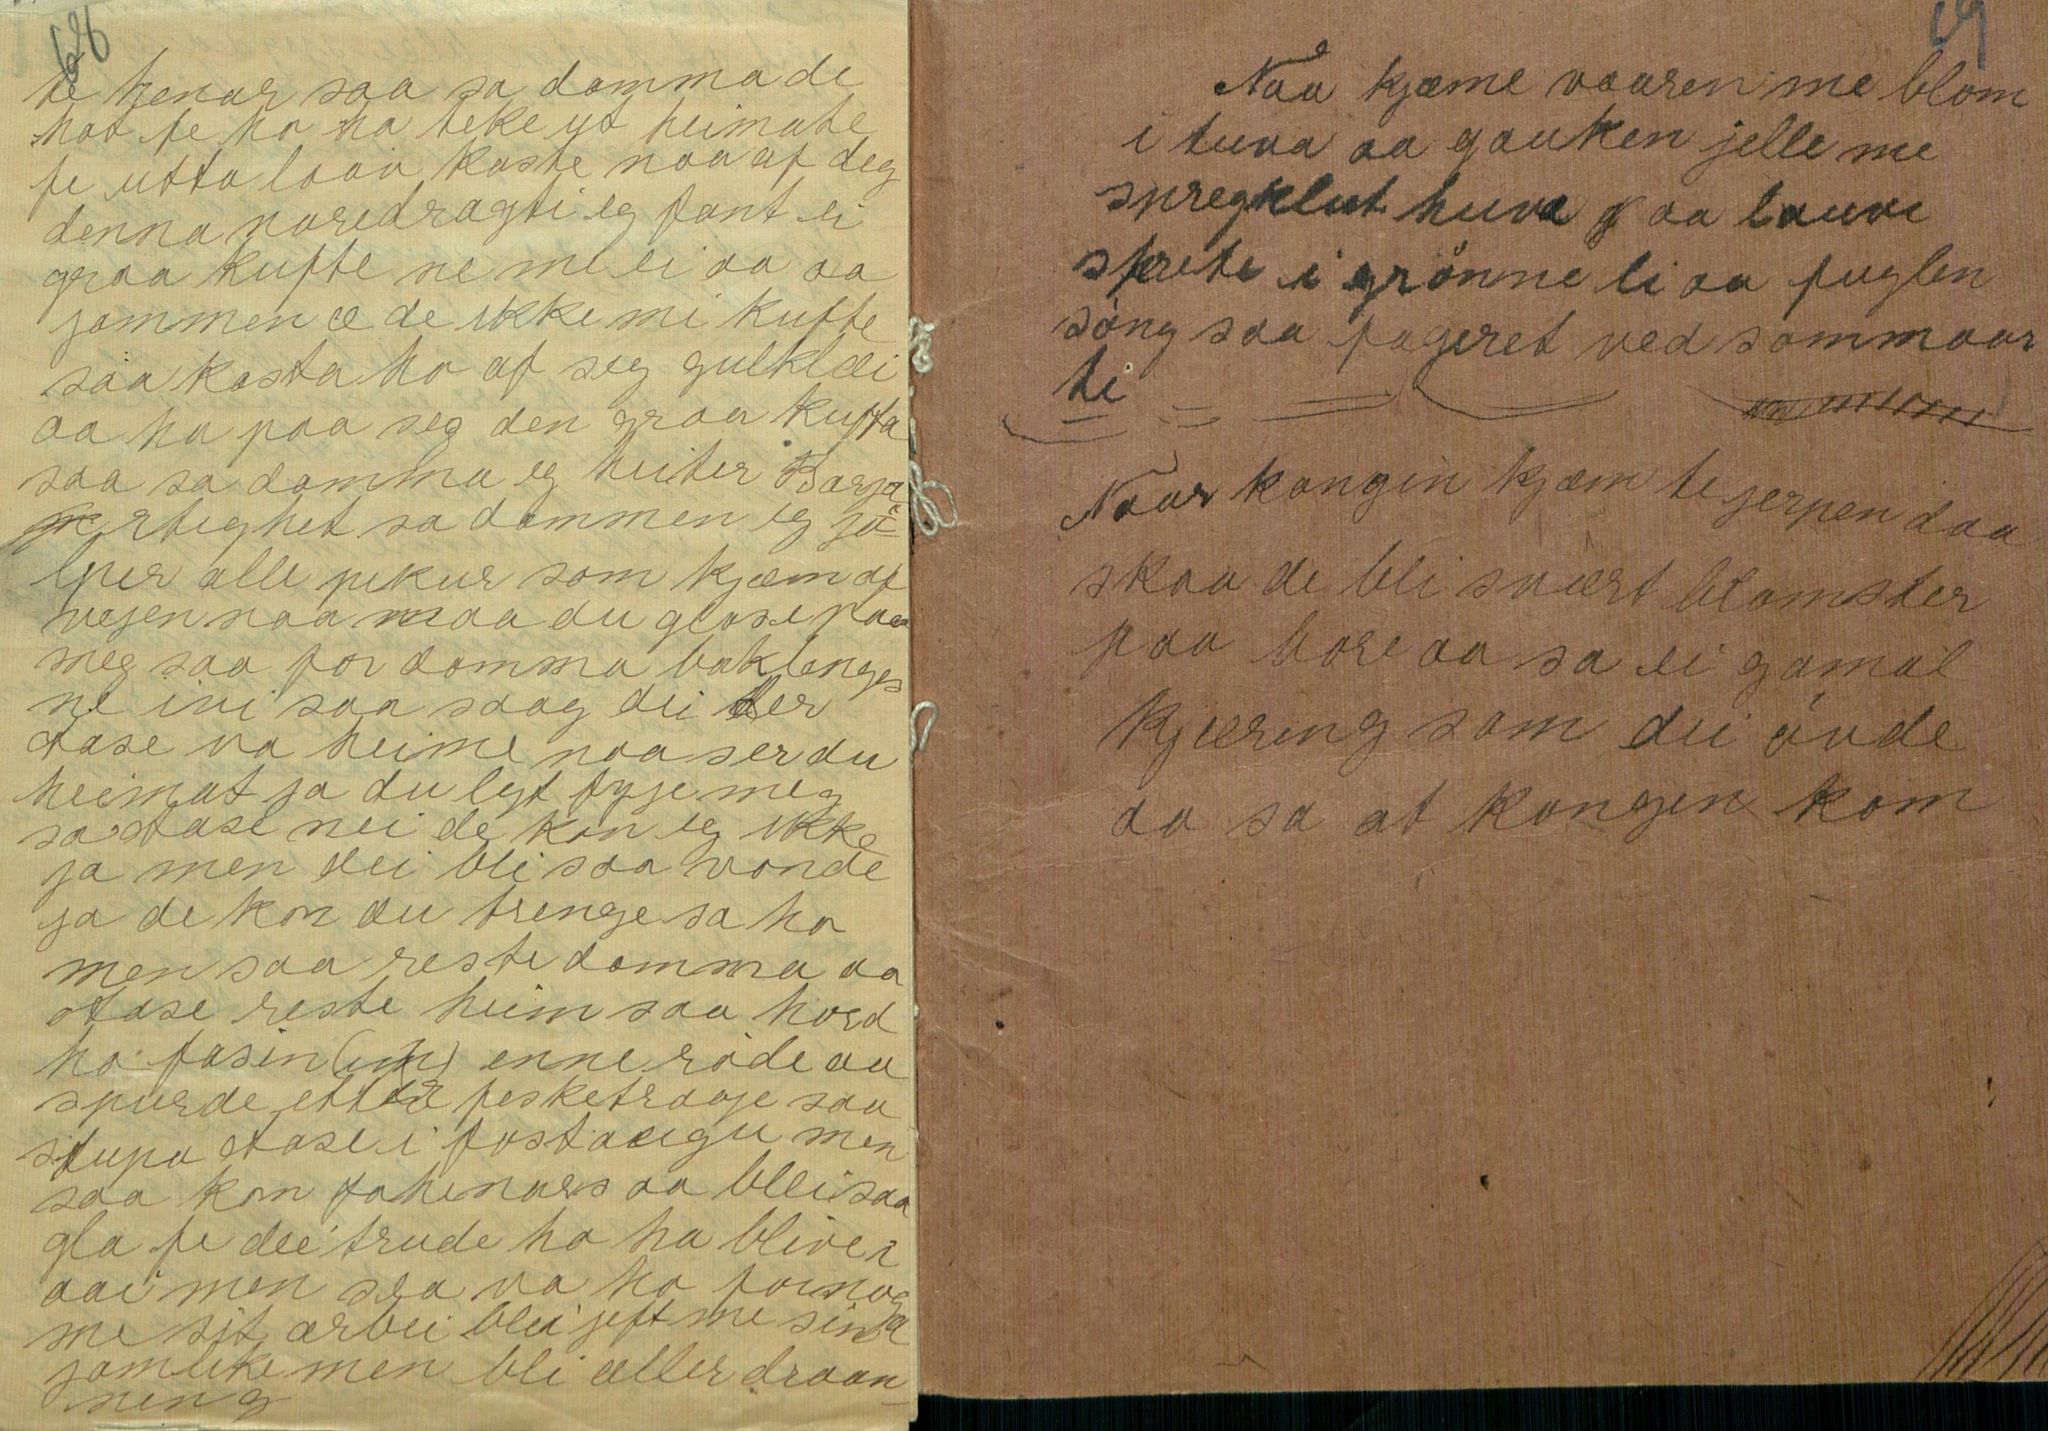 68
te henar saa sa domma de
hat fe ho ha teke ut heimate
fe utta loov kaste naa af deg
denna noredragti eg fant ei
graa kufte ne me ei aa aa
jommen æ de ikke mi kufte
saa kasta ho af seg gulklæi
aa ha paa seg den graa kufta
saa sa domma eg heiter Barja
rtighet sa dommen eg jö-
lper alle pikur som kjæm af
vejen naa maa du glose paa
meg saa for domma baklenges
ne ivi saa saag dei der
Aase va heime naa ser du
heimat ja du lyt fyje meg
sa Aase nei de kan eg ikke
ja men dei bli saa vonde
ja de kan du trenge sa ho
men saa reste domma aa
Aase reste heim saa hord
ho fasin enne röde aa
spurde etter fesketraaje saa
stupa Aase i
saa kom fahenars aa blei saa
gla fe dei trude ho ha blive i
aai men saa va ho fornög
me sit arbei blei jeft me sin ja
jamlike men bli aller draan-
neng
69
Naa kjæme vaaren me blom
i tuva aa gauken jelle me
spregklut huva aa lauve
sprete i grönne li aa fuglen
söng saa fageret ved sommaar
ti
Naar kongin kjæm te jerpen daa
skaa de bli svært blomster
paa bore aa sa ei gamal
kjæring som dei övde
aa sa at kongen kom